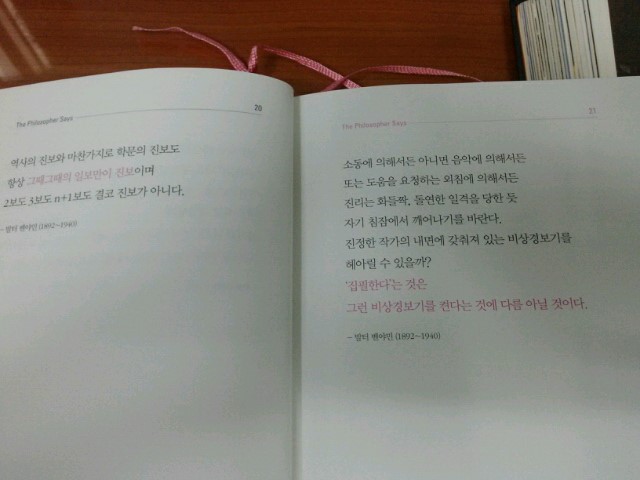 The Philosopher Says
20
역사의 진보와 마찬가지로 학문의 진보도
항상 그때그때의 일보만이 진보이며
2보도 3보도 n+1보도 결코 진보가 아니다.
– 발터 벤야민 (1892~1940)
The Philosopher Says
21
소동에 의해서든 아니면 음악에 의해서든
또는 도움을 요청하는 외침에 의해서든
진리는 화들짝, 돌연한 일격을 당한 듯
자기 침잠에서 깨어나기를 바란다.
진정한 작가의 내면에 갖춰져 있는 비상경보기를
헤아릴 수 있을까?
‘집필한다’는 것은
그런 비상경보기를 켠다는 것에 다름 아닐 것이다.
– 발터 벤야민 (1892~1940)